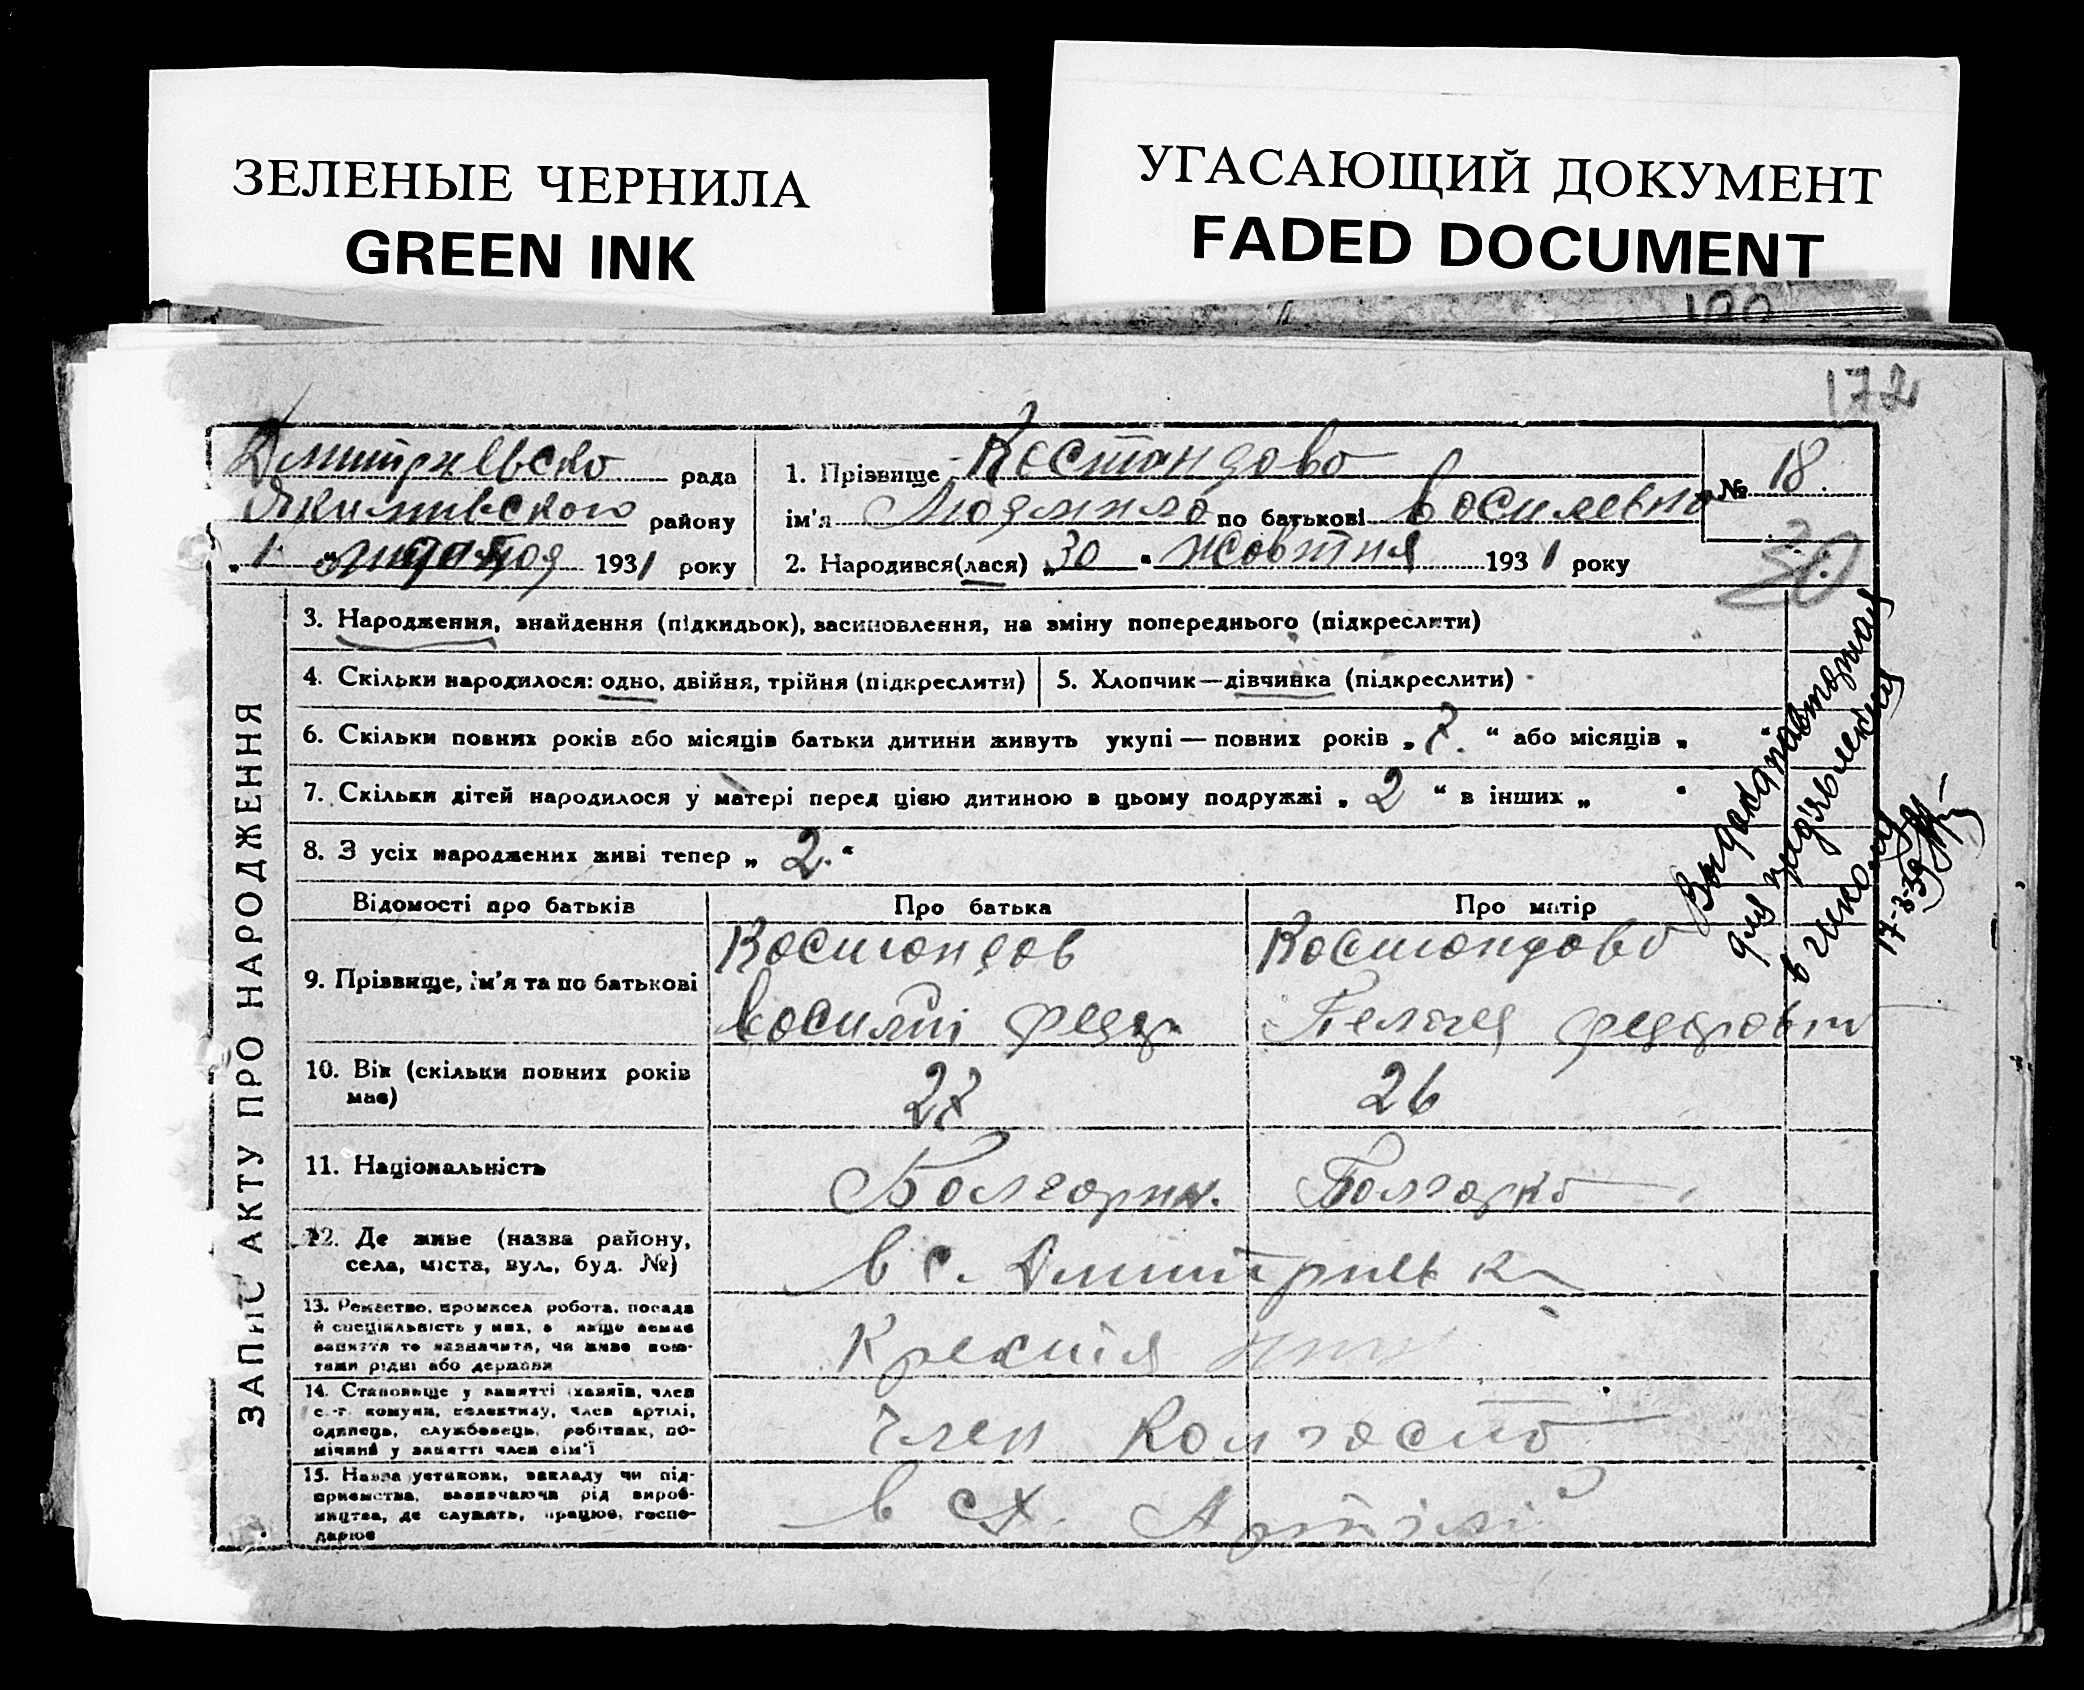 ЗЕЛЕНЫЕ ЧЕРНИЛА
GREEN INK
УГАСАЮЩИЙ ДОКУМЕНТ
FADED DOCUMENT
172
рада
району
„ 1 “ 1931 року
1. Прізвище Костандова
ім'я Людмила по батькові Василевна
2. Народився(лася) „ 30 “ жовтня 1931 року
№ 18.
30
ЗАПИС АКТУ ПРО НАРОДЖЕННЯ
3. Народження, знайдення (підкидьок), засиновлення, на зміну попереднього (підкреслити)
4. Скільки народилося: одно, двійня, трійня (підкреслити)
5. Хлопчик—дівчинка (підкреслити)
6. Скільки повних років або місяців батьки дитини живуть укупі — повних років „ 7. “ або місяців „ “
7. Скільки дітей народилося у матері перед цією дитиною в цьому подружжі „ 2 “ в інших „ “
8. З усіх народжених живі тепер „ 2. “
Відомості про батьків
Про батька
Про матір
9. Прізвище, ім'я та по батькові
Костандов
Василій Федр
Костандова
Пелагея Федоровна
10. Вік (скільки повних років має)
27
26
11. Національність
Болгарин.
Болгарка
12. Де живе (назва району,
села, міста, вул., буд. №)
в с. Дмитрівка
13. Ремество, промисел робота, посада
й спеціяльність у них, а якщо немає
заняття то зазначити, чи живе кош-
тами рідні або держави
14. Становище у занятті (хазяїн, член
с.-г. комуни, колективу, член артілі,
одинець, службовець, робітник, по-
мічний у занятті член сім'ї
член колгоспа
15. Назва установи, закладу чи під-
приємства, зазначаючи рід вироб-
ництва, де служить, працює, госпо-
дарює
в сх. Артілі
для
в школу
17-3-39